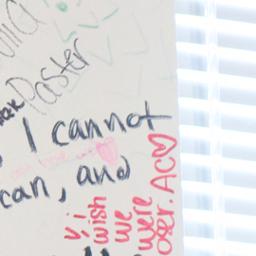 Paster
I cannot
can, and
i
wish
we
were
oser. AC♡